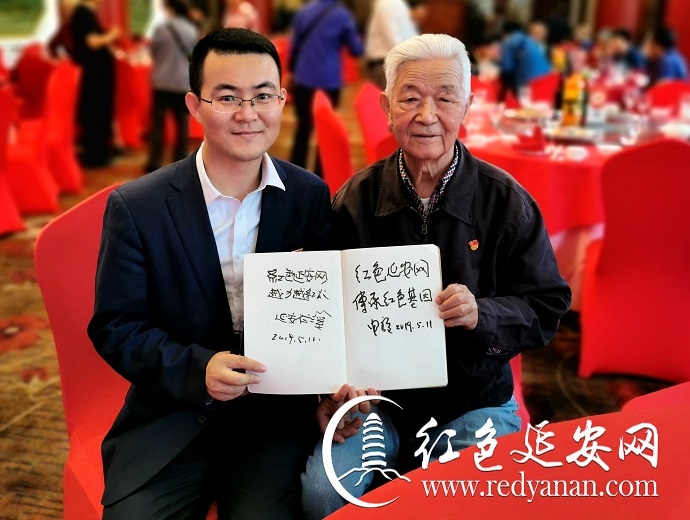 红色延安网
2019.5.11.
红色延安网
傳承红色基因
2019.5.11
红色延安网
www.redyanan.com